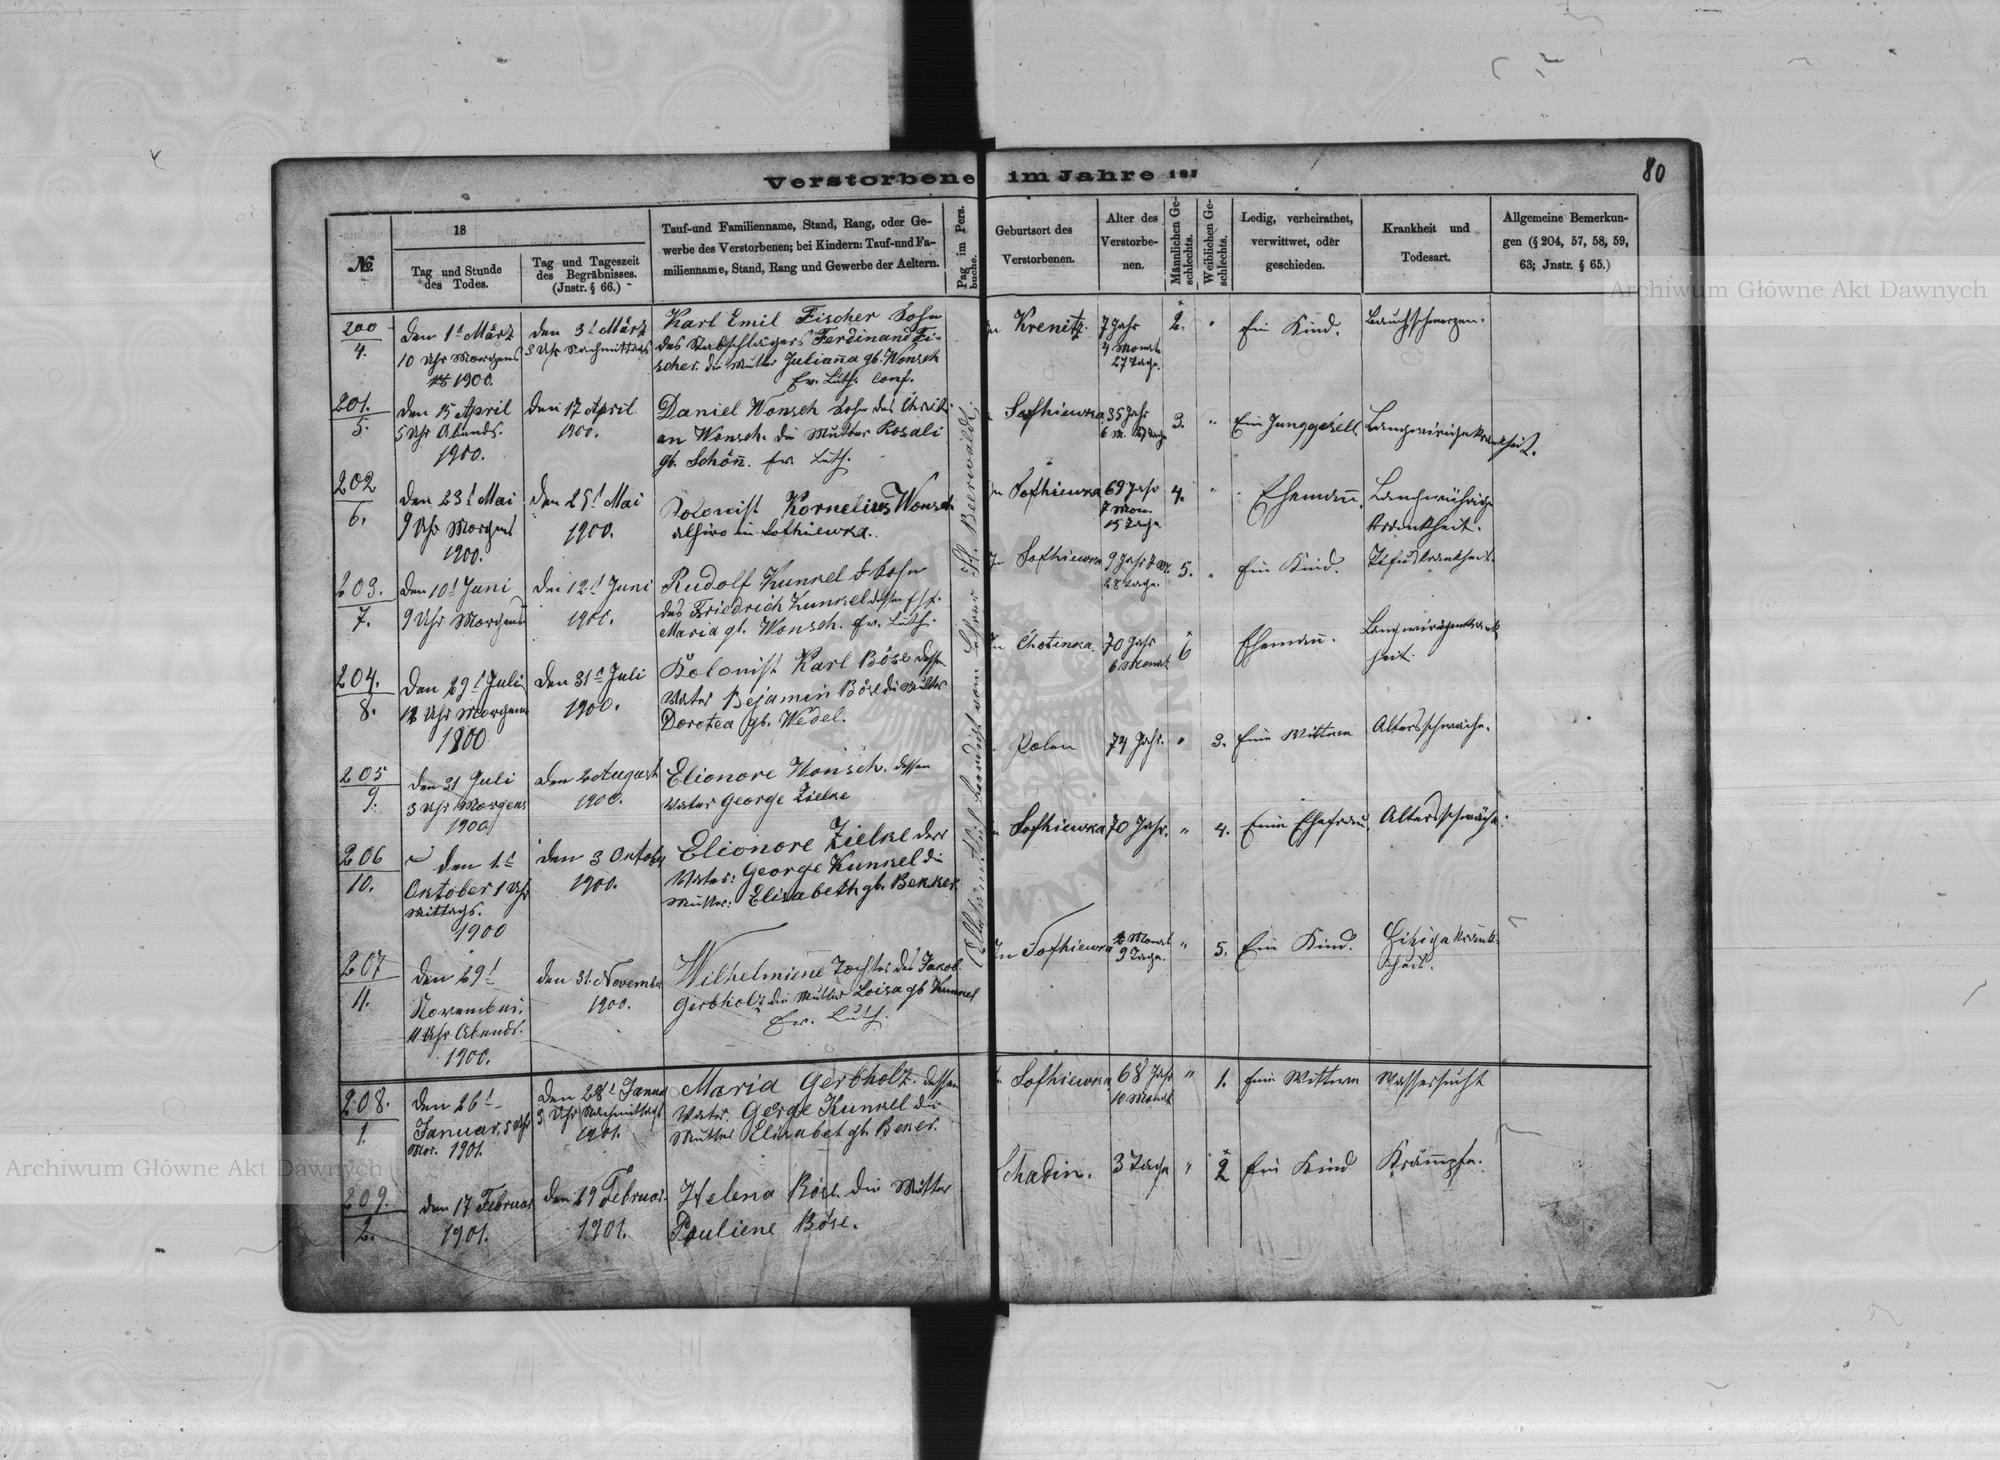 Verstorbene im Jahre 187
80
№
18
Tag und Stunde
des Todes.
Tag und Tageszeit
des Begräbnisses.
(Jnstr. § 66.)
Tauf-und Familienname, Stand, Rang, oder Ge-
werbe des Verstorbenen; bei Kindern: Tauf-und Fa-
milienname, Stand, Rang und Gewerbe der Aeltern.
Pag im Pers.
buche.
Geburtsort des
Verstorbenen.
Alter des
Verstorbe-
nen.
Männlichen Ge-
schlechts.
Weiblichen Ge-
schlechts.
Ledig, verheirathet,
verwittwet, oder
geschieden.
Krankheit und
Todesart.
Allgemeine Bemerkun-
gen (§ 204, 57, 58, 59,
63; Jnstr. § 65.)
200
4.
den 1t März
10 Uhr Morgens
1900.
den 3t März
3 Uhr Nachmittags
Karl Emil Fischer Sohn
des Stabschlägers Ferdinand Fi-
scher. die Mutter Julianna gb. Wonsch
Ev. Luth. Conf.
In Krenitz.
7 Jahr
4 Monat
27 Tage.
2.
"
Ein Kind.
Bauchschmerzen.
201.
5.
den 15 April
5 Uhr Abends.
1900.
den 17 April
1900.
Daniel Wonsch Sohn des Christi
an Wonsch. die Mutter Rosali
gb. Schönn. Ev. Luth.
Sofhiewka
35 Jahr
6 M. Tage
3.
"
Ein Junggesell.
Langwirige Krankheit.
202
6.
den 23t Mai
9 Uhr Morgens
1900.
den 25t Mai
1900.
Kolonist Kornelius Wonsch
alhiro in Sofhiewka.
In Sofhiewka
69 Jahr
7 Mon.
15 Tage
4.
"
Ehemann.
Langwührige
Krankheit.
203.
7.
den 10t Juni
9 Uhr Morgens
den 12t Juni
1900.
Rudolf Kunkel Sohn
des Friedrich Kunkel dessen Ehf.
Maria gb. Wonsch. Ev. Luth.
In Sofhiewka
9 Jahr M.
28 Tage.
5.
"
Ein Kind.
Tifuskrankheit.
204.
8.
den 29t Juli
12 Uhr Morgens
1900
den 31t Juli
1900.
Kolonist Karl Böse dessen
Vater Bejamin Böse die Mutter
Dorotea gb. Wedel.
In Chotinka.
70 Jahr
6 Monat
6
Ehemann.
Langwirigekrank
heit.
205
9.
den 21 Juli
3 Uhr Morgens
1900
den 2 August
1900.
Elionore Wonsch. dessen
Vater George Zielke
Polen
74 Jahr.
"
3.
Eine Wittwe
Altersschwäche.
206
10.
den 1t
Oktober 1 Uhr
Mittags.
1900
den 3 Oktober
1900.
Elionore Zielke der
Vater: George Kunkel die
Mutter: Elisabeth gb. Bekker.
In Sofhiewka
70 Jahr.
"
4.
Eine Ehefrau
Altersschwäche.
207
11.
den 29t
November.
11 Uhr Abends.
1900.
den 31. November
1900.
Wilhelmiene Tochter des Jakob
Gerbholz die Mutter Loisa gb Kunkel
Ev. Luth.
In Sofhiewka
Monat
9 Tage.
"
5.
Ein Kind.
Hitzige Krank-
heit.
208.
1.
den 26t
Januar, 5 Uhr
Mor. 1901.
den 28t Janua
3 Uhr Nachmittags
1901.
Maria Gerbholz. dessen
Vater George Kunkel die
Mutter Elisabet gb. Beker.
Sofhiewka
68 Jahr
10 Monat
"
1.
Eine Wittwe
Wassersucht
209.
2.
den 17 Februar
1901.
den 19 Februar
1901.
Helena Böse die Mutter
Pauliene Böse.
Chadin.
3 Tage
"
2
Ein Kind
Krämpfe.
Archiwum Główne Akt Dawnych
Archiwum Główne Akt Dawnych